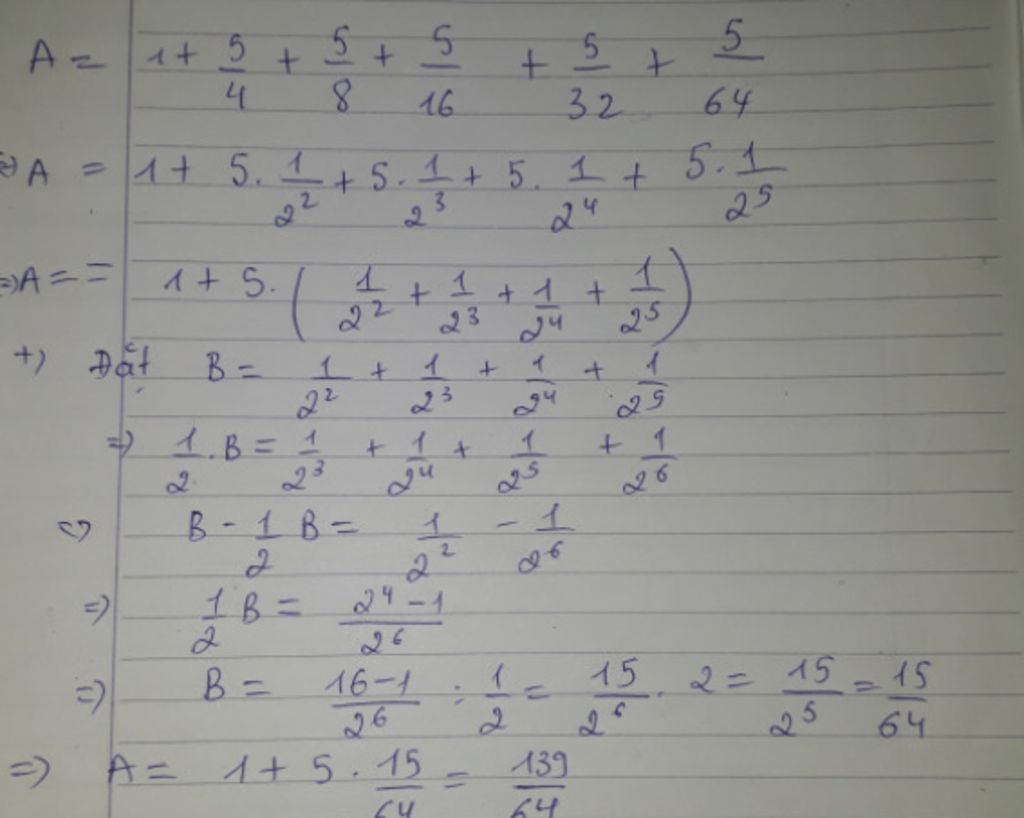 A = 1 + 5/4 + 5/8 + 5/16 + 5/32 + 5/64
⇔ A = 1 + 5 . 1/2² + 5 . 1/2³ + 5 . 1/2⁴ + 5 . 1/2⁵
⇒ A = = 1 + 5 . ( 1/2² + 1/2³ + 1/2⁴ + 1/2⁵ )
+) Đặt B = 1/2² + 1/2³ + 1/2⁴ + 1/2⁵
⇒ 1/2 . B = 1/2³ + 1/2⁴ + 1/2⁵ + 1/2⁶
⇔ B - 1/2 B = 1/2² - 1/2⁶
⇒ 1/2 B = (2⁴ - 1)/2⁶
⇒ B = (16 - 1)/2⁶ : 1/2 = 15/2⁶ . 2 = 15/2⁵ = 15/64
⇒ A = 1 + 5 . 15/64 = 139/64